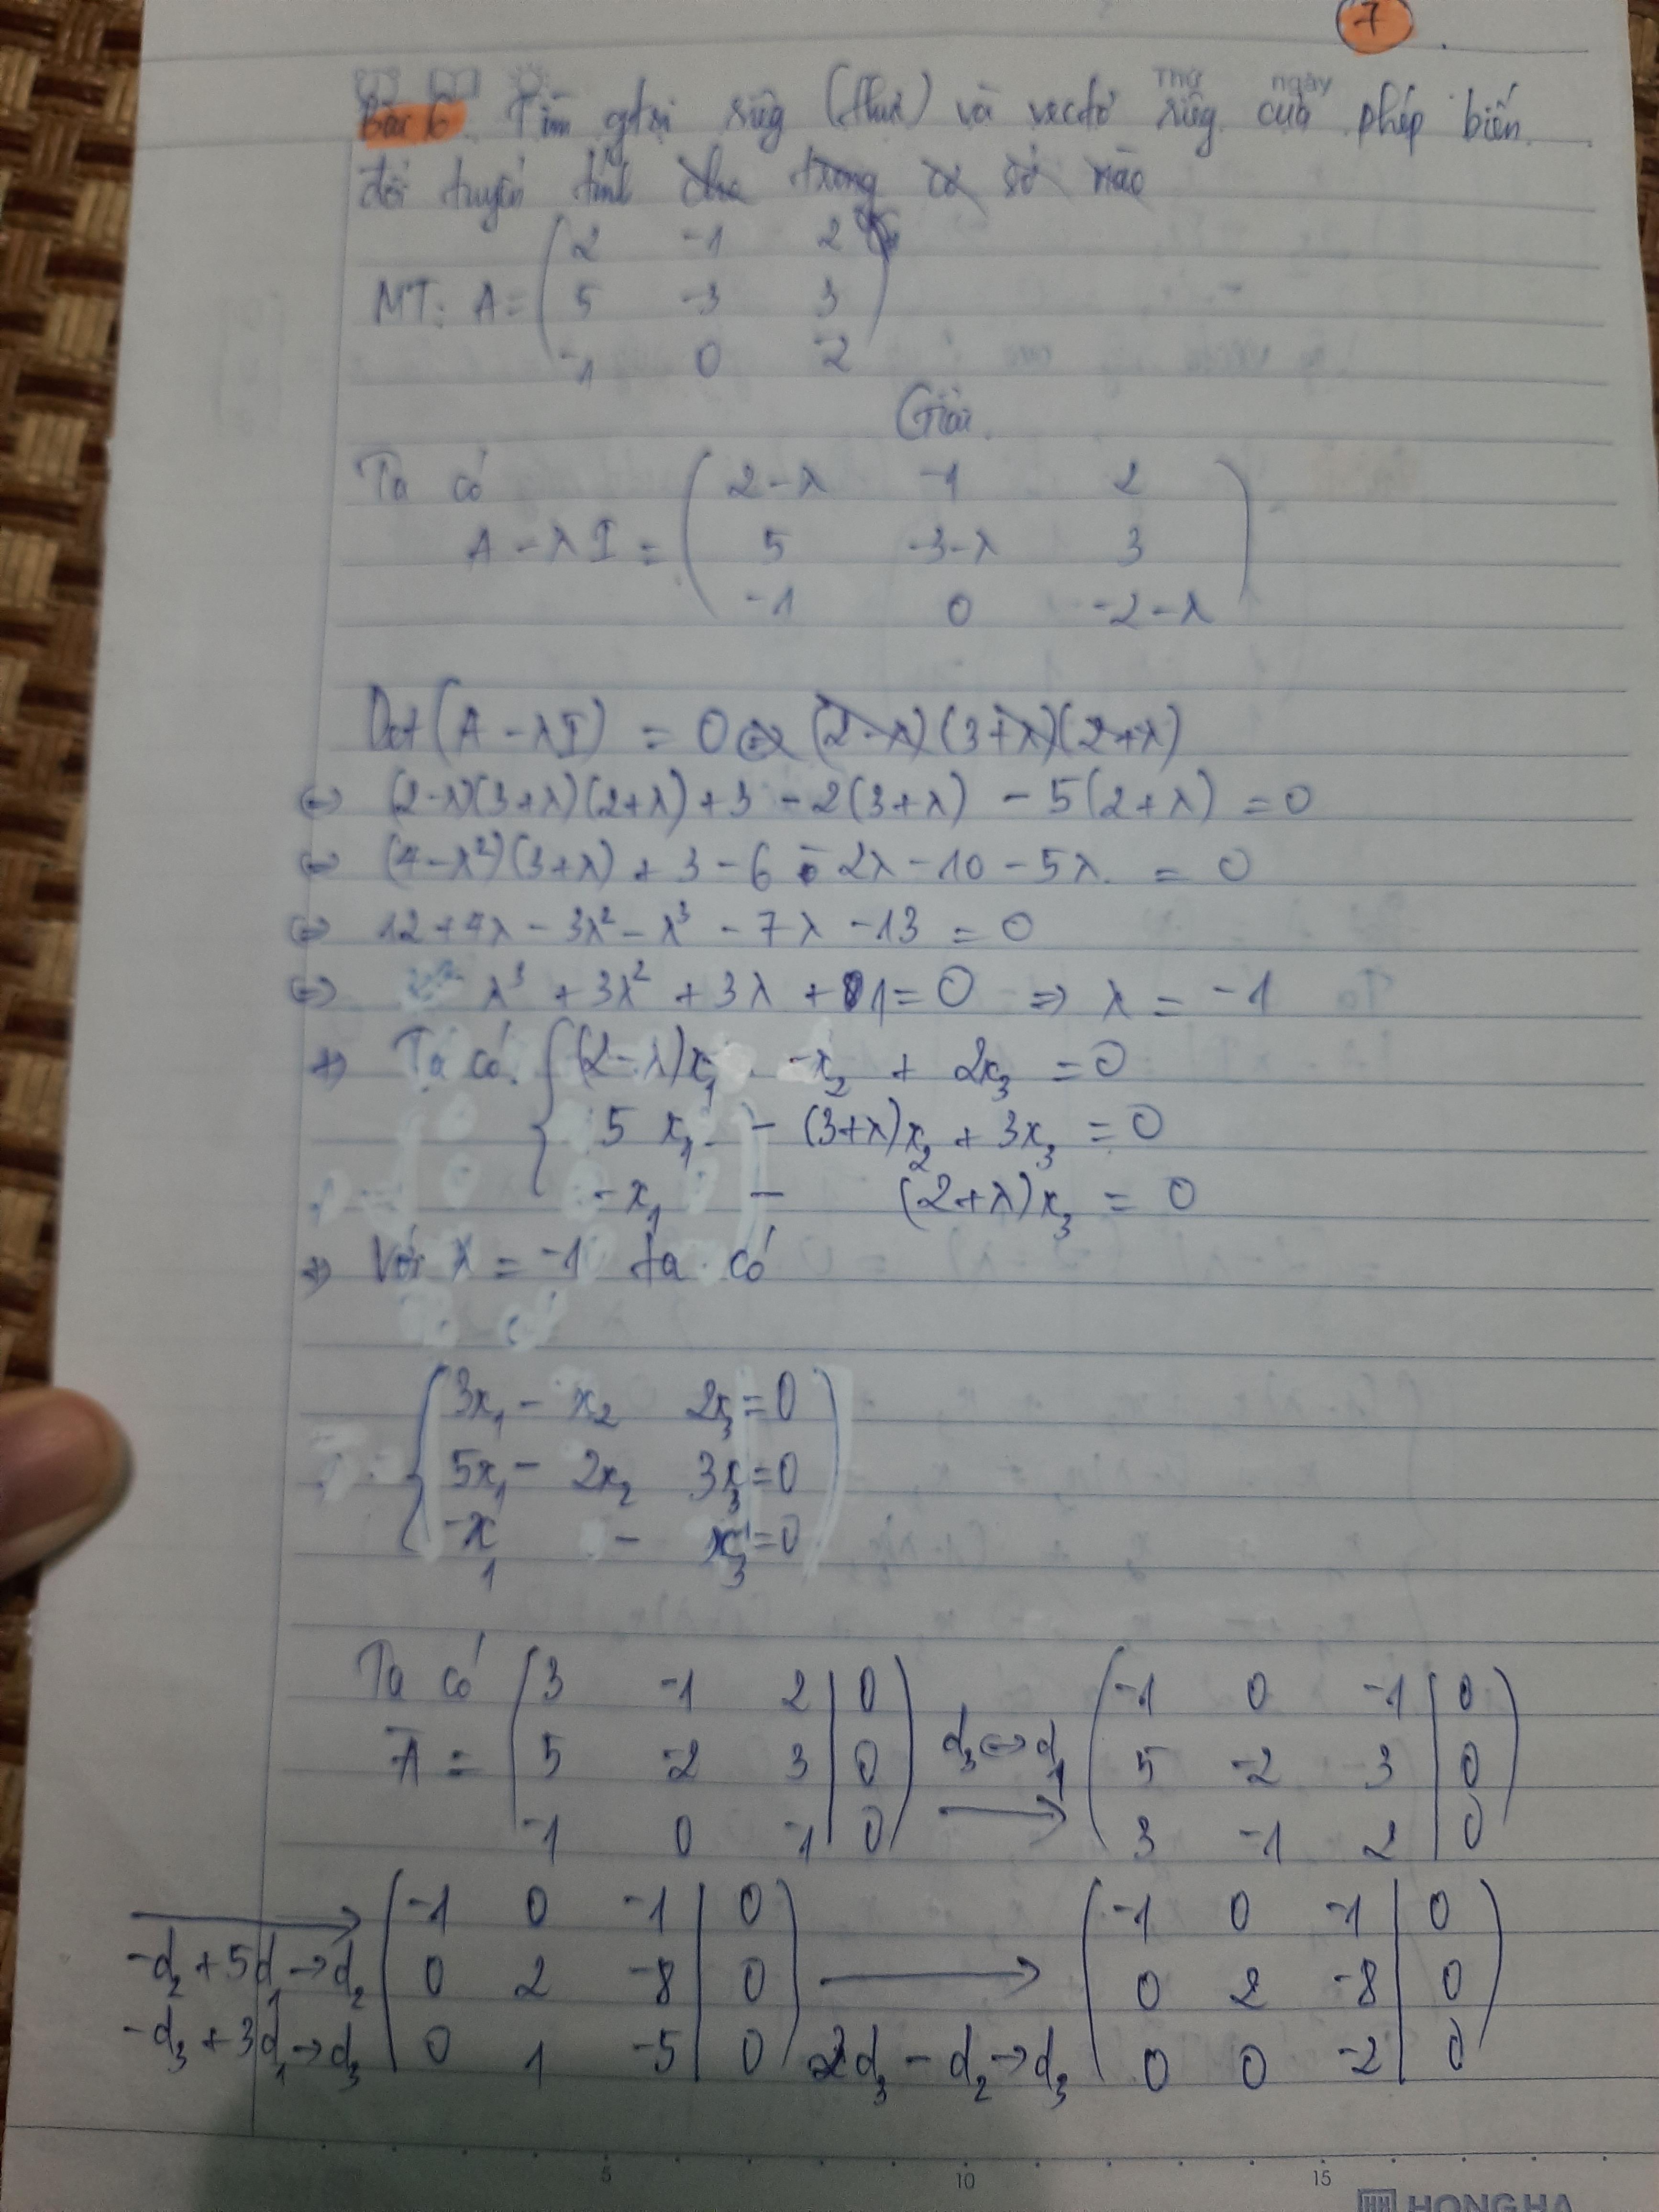 7
Thứ ngày
Bài 6. Tìm gtrị riêng (thực) và vectơ riêng của phép biến
đổi tuyến tính cho trong cơ sở nào
MT: A = ( 2 -1 2
5 -3 3
-1 0 -2 )
Giải.
Ta có
A - λI = ( 2-λ -1 2
5 -3-λ 3
-1 0 -2-λ )
Det (A - λI) = 0 ⇔ (2-λ)(3+λ)(2+λ)
⇔ (2-λ)(3+λ)(2+λ) + 3 - 2(3+λ) - 5(2+λ) = 0
⇔ (4-λ²)(3+λ) + 3 - 6 - 2λ - 10 - 5λ = 0
⇔ 12 + 4λ - 3λ² - λ³ - 7λ - 13 = 0
⇔ λ³ + 3λ² + 3λ + 1 = 0 ⇒ λ = -1
+) Ta có { (2-λ)x₁ -x₂ + 2x₃ = 0
5x₁ - (3+λ)x₂ + 3x₃ = 0
-x₁ - (2+λ)x₃ = 0
+) Với λ = -1 ta có
{ 3x₁ - x₂ 2x₃ = 0
5x₁ - 2x₂ 3x₃ = 0
-x₁ - x₃ = 0
Ta có
A̅ = ( 3 -1 2 | 0
5 -2 3 | 0
-1 0 -1 | 0 ) d₃ ↔ d₁ → ( -1 0 -1 | 0
5 -2 3 | 0
3 -1 2 | 0 )
-d₂ + 5d₁ → d₂
-d₃ + 3d₁ → d₃
( -1 0 -1 | 0
0 2 -8 | 0
0 1 -5 | 0 ) 2d₃ - d₂ → d₃ ( -1 0 -1 | 0
0 2 -8 | 0
0 0 -2 | 0 )
5 10 15
HONG HA